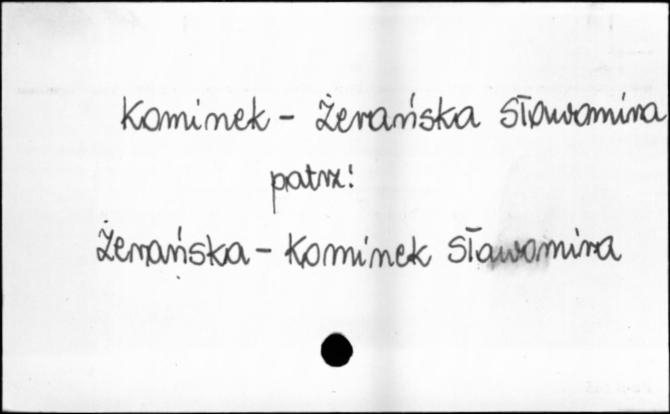 Kominek - Żerańska Sławomira
patrz:
Żerańska - Kominek Sławomira